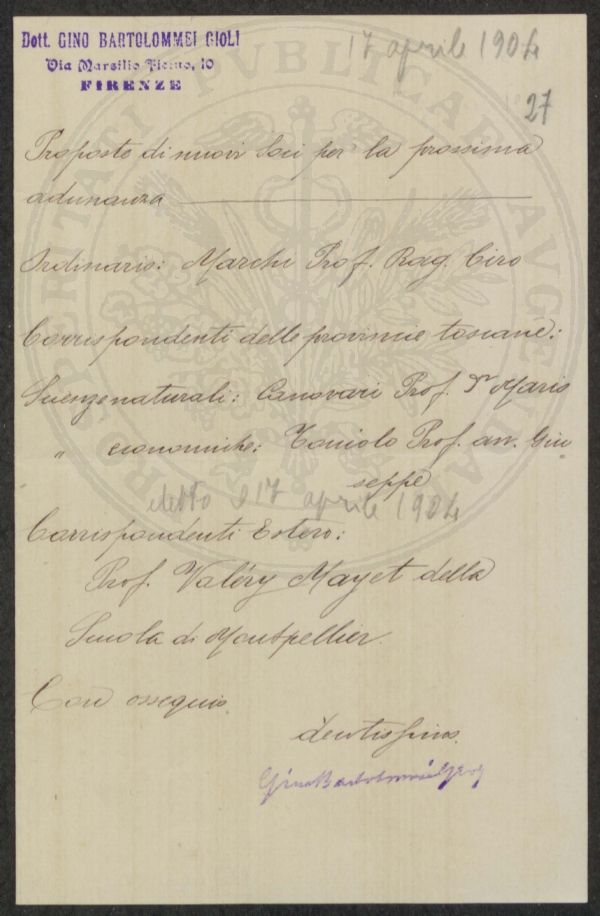 Dott. GINO BARTOLOMMEI GIOLI
Via Marsilio Ficino, 10
FIRENZE
17 aprile 1904
27
Proposte di nuovi Soci per la prossima
adunanza
Ordinario: Marchi Prof. Rag. Ciro
Corrispondenti delle provincie toscane:
Scienze naturali: Canavari Prof. Dr Mario
" economiche: Toniolo Prof. avv. Giu
seppe
eletto 17 aprile 1904
Corrispondenti Estero:
Prof. Valéry Mayet della
Scuola di Montpellier.
Con ossequio
Gino Bartolommei Gioli
PROSPERITATI PUBLICAE AUGENDAE